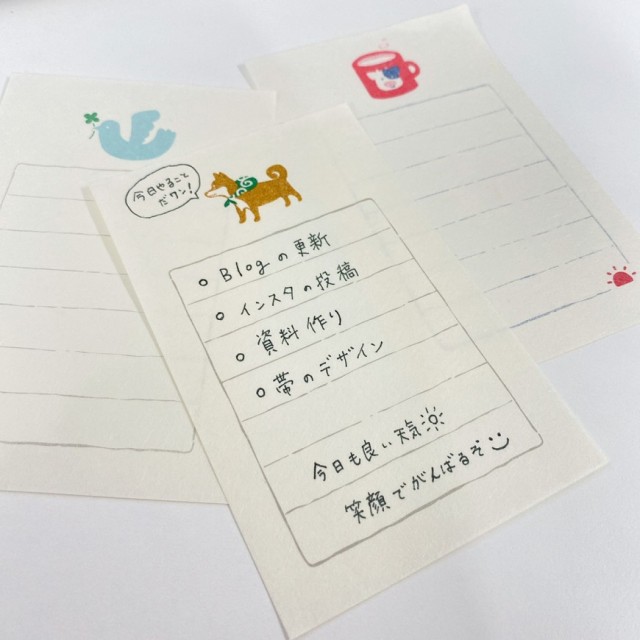 今日やること
だワン!
○ Blogの更新
○ インスタの投稿
○ 資料作り
○ 帯のデザイン
今日も良い天気
笑顔でがんばるぞ